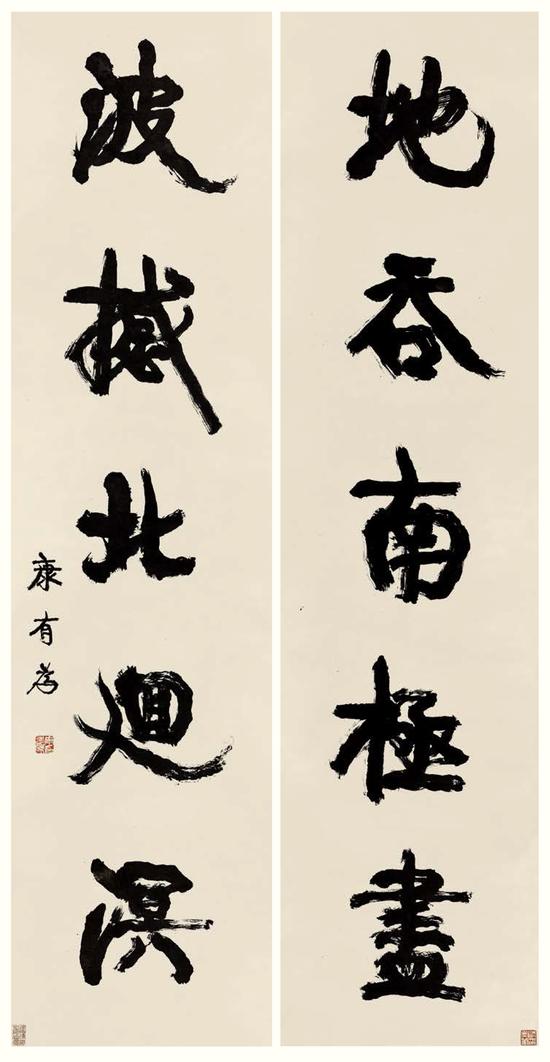 地吞南極盡
波撼北迴溟
康有為